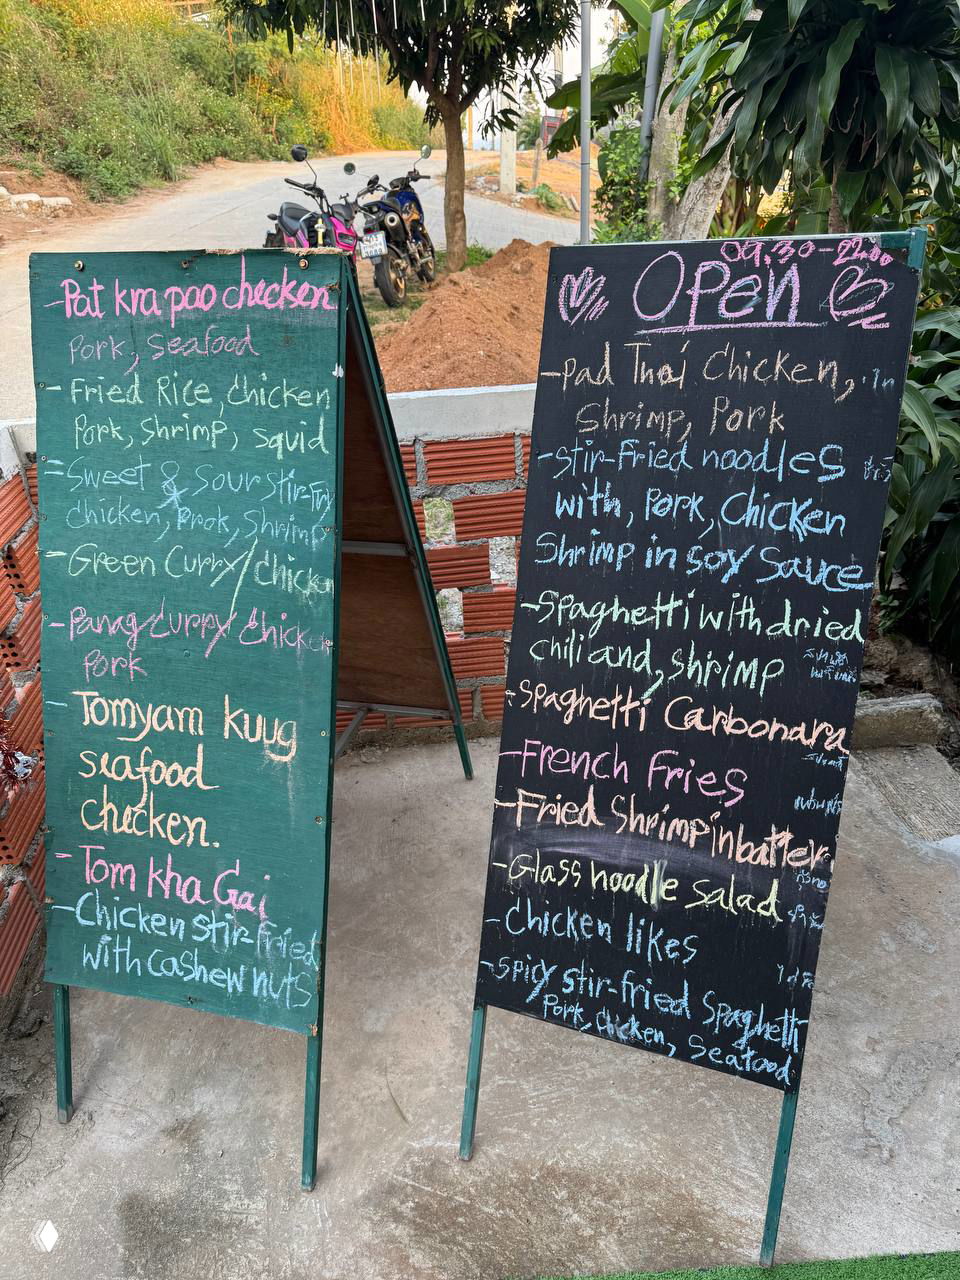 - Pat kra pao checken
Pork, seafood
- Fried Rice, chicken
Pork, Shrimp, squid
= Sweet & Sour Stir-Fry
chicken, Prok, Shrimp
= Green Curry/chicken
- Panag curry chicken
Pork
- Tomyam kuug
seafood
checken.
- Tom kha Gai
- Chicken stir-fried
with cashew nuts
09.30-22.00
Open
- Pad Thai Chicken,
Shrimp, Pork
- Stir-Fried noodles
with, Pork, Chicken
Shrimp in soy Sauce
- Spaghetti with dried
chili and, shrimp
- Spaghetti Carbonara
- French Fries
- Fried Shrimp in batter
- Glass hoodle salad
- Chicken likes
- Spicy stir-fried Spaghetti
Pork, chicken, seafood